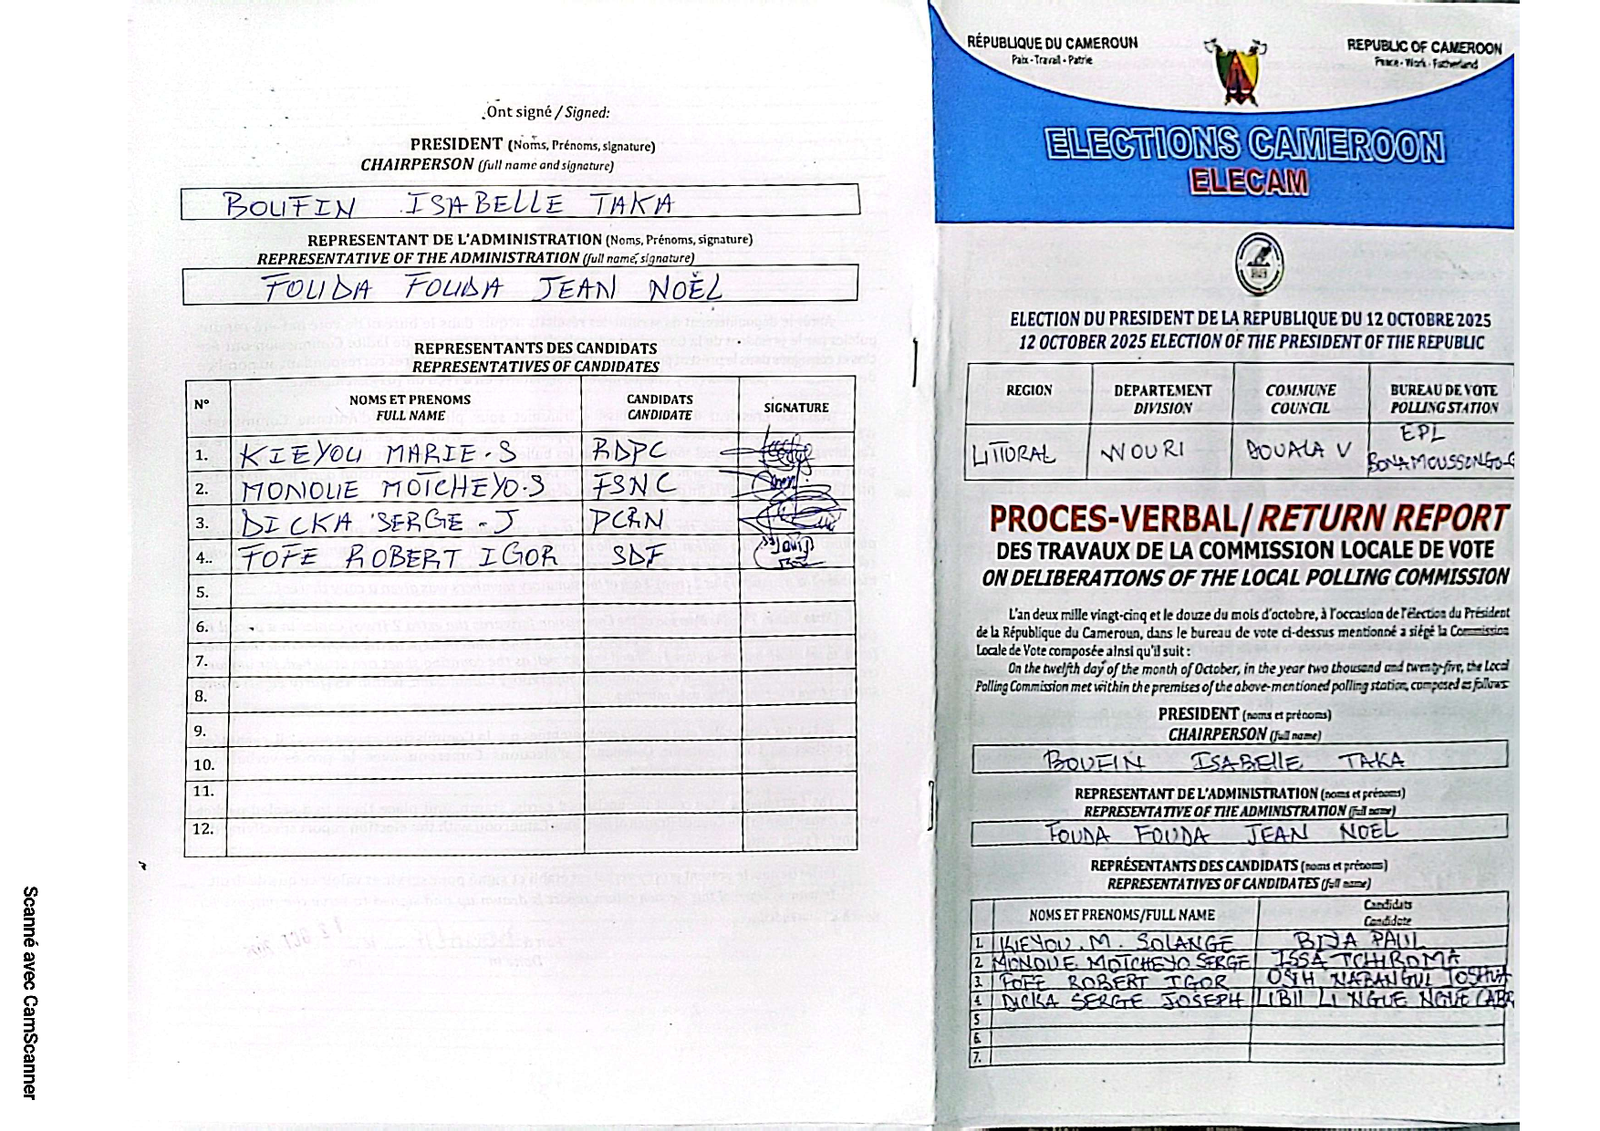 Ont signé / Signed:
PRESIDENT (Noms, Prénoms, signature)
CHAIRPERSON (full name and signature)
BOUFIN ISABELLE TAKA
REPRESENTANT DE L'ADMINISTRATION (Noms, Prénoms, signature)
REPRESENTATIVE OF THE ADMINISTRATION (full name, signature)
FOUDA FOUDA JEAN NOËL
REPRESENTANTS DES CANDIDATS
REPRESENTATIVES OF CANDIDATES
N° NOMS ET PRENOMS CANDIDATS SIGNATURE
FULL NAME CANDIDATE
1. KIEYOU MARIE-S RDPC
2. MONIQUE MOTCHEYO-S FSNC
3. DICKA SERGE-J PCRN
4.. FOFE ROBERT IGOR SDF
5.
6.
7.
8.
9.
10.
11.
12.
Scanné avec CamScanner
RÉPUBLIQUE DU CAMEROUN
Paix - Travail - Patrie
REPUBLIC OF CAMEROON
Peace - Work - Fatherland
ELECTIONS CAMEROON
ELECAM
ELECTION DU PRESIDENT DE LA REPUBLIQUE DU 12 OCTOBRE 2025
12 OCTOBER 2025 ELECTION OF THE PRESIDENT OF THE REPUBLIC
REGION DEPARTEMENT COMMUNE BUREAU DE VOTE
DIVISION COUNCIL POLLING STATION
LITTORAL WOURI DOUALA V EPL
BONAMOUSSONGO-G
PROCES-VERBAL / RETURN REPORT
DES TRAVAUX DE LA COMMISSION LOCALE DE VOTE
ON DELIBERATIONS OF THE LOCAL POLLING COMMISSION
L'an deux mille vingt-cinq et le douze du mois d'octobre, à l'occasion de l'élection du Président
de la République du Cameroun, dans le bureau de vote ci-dessus mentionné a siégé la Commission
Locale de Vote composée ainsi qu'il suit :
On the twelfth day of the month of October, in the year two thousand and twenty-five, the Local
Polling Commission met within the premises of the above-mentioned polling station, composed as follows:
PRESIDENT (noms et prénoms)
CHAIRPERSON (full name)
BOUFIN ISABELLE TAKA
REPRESENTANT DE L'ADMINISTRATION (noms et prénoms)
REPRESENTATIVE OF THE ADMINISTRATION (full name)
FOUDA FOUDA JEAN NOEL
REPRÉSENTANTS DES CANDIDATS (noms et prénoms)
REPRESENTATIVES OF CANDIDATES (full name)
NOMS ET PRENOMS/FULL NAME Candidats
Candidate
1. KIEYOU. M. SOLANGE BIYA PAUL
2 MONQUE MOTCHEYO SERGE ISSA TCHIROMA
3. FOFE ROBERT IGOR OSIH NABANGUI JOSHUA
4. DICKA SERGE JOSEPH LIBII LI NGUE NGUE CABR
5
6.
7.